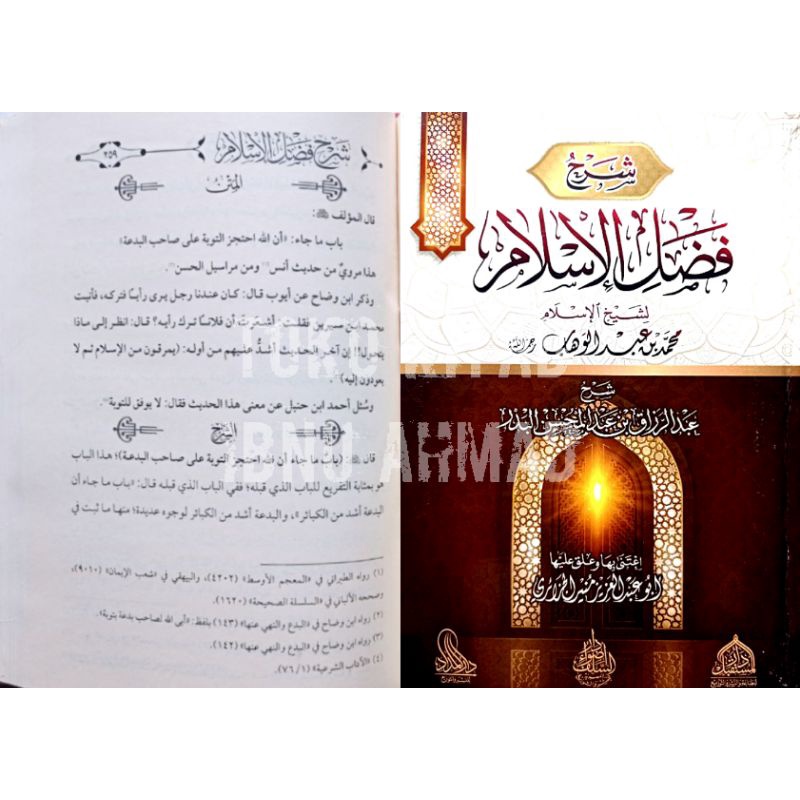 شرح فضل الإسلام
٢٥٩
المتن
قال المؤلف ﷺ:
باب ما جاء: «أن الله احتجز التوبة على صاحب البدعة»
هذا مرويٌ من حديث أنس(١) ومن مراسيل الحسن(٢).
وذكر ابن وضاح عن أيوب قال: كان عندنا رجل يرى رأيا فتركه، فأتيت
محمد ابن سيرين فقلت: أشعرت أن فلانا ترك رأيه؟ قال: انظر إلى ماذا
يتحول!! إن آخر الحديث أشدُّ عليهم من أوله: (يمرقون من الإسلام ثم لا
يعودون إليه)(٣)
وسُئل أحمد ابن حنبل عن معنى هذا الحديث فقال: لا يوفق للتوبة(٤).
الشرح
قال: (باب ما جاء أن الله احتجز التوبة على صاحب البدعة)؛ هذا الباب
هو بمثابة التفريع للباب الذي قبله؛ ففي الباب الذي قبله قال: «باب ما جاء أن
البدعة أشد من الكبائر»، والبدعة أشد من الكبائر لوجوه عديدة؛ منها ما ثبت في
(١) رواه الطبراني في «المعجم الأوسط» (٤٢٠٢)، والبيهقي في «شعب الإيمان» (٩٠١٠)،
وصححه الألباني في «السلسلة الصحيحة» (١٦٢٠).
(٢) رواه ابن وضاح في «البدع والنهي عنها» (١٤٣) بلفظ: «أبى الله لصاحب بدعة بتوبة».
(٣) رواه ابن وضاح في «البدع والنهي عنها» (١٤٢)
(٤) «الآداب الشرعية» (١/ ٧٦)
شرح
فضل الإسلام
لشيخ الإسلام
محمد بن عبد الوهاب رحمه الله
شرح
عبد الرزاق بن عبد المحسن البدر
اعتنى بها وعلق عليها
أبو عبد العزيز منير الجزائري
TOKO KITAB
IBNU AHMAD